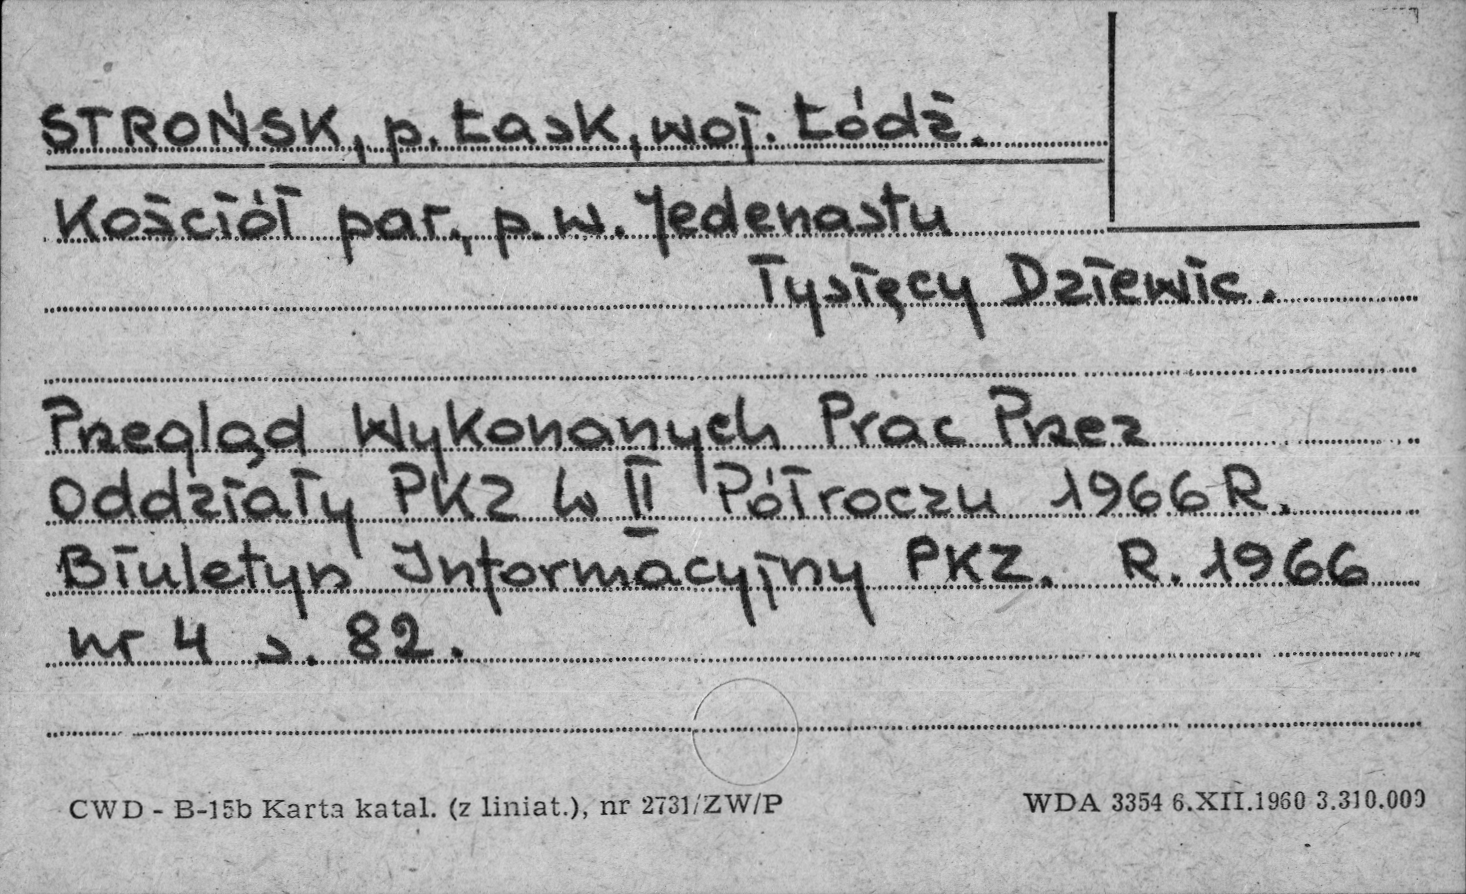 STROŃSK, p. Łask, woj. Łódź.
Kościół par., p.w. Jedenastu
Tysięcy Dziewic.
Przegląd Wykonanych Prac Przez
Oddziały PKZ w II Półroczu 1966 R.
Biuletyn Informacyjny PKZ. R. 1966
nr 4 s. 82.
CWD - B-15b Karta katal. (z liniat.), nr 2731/ZW/P
WDA 3354 6.XII.1960 3.310.000